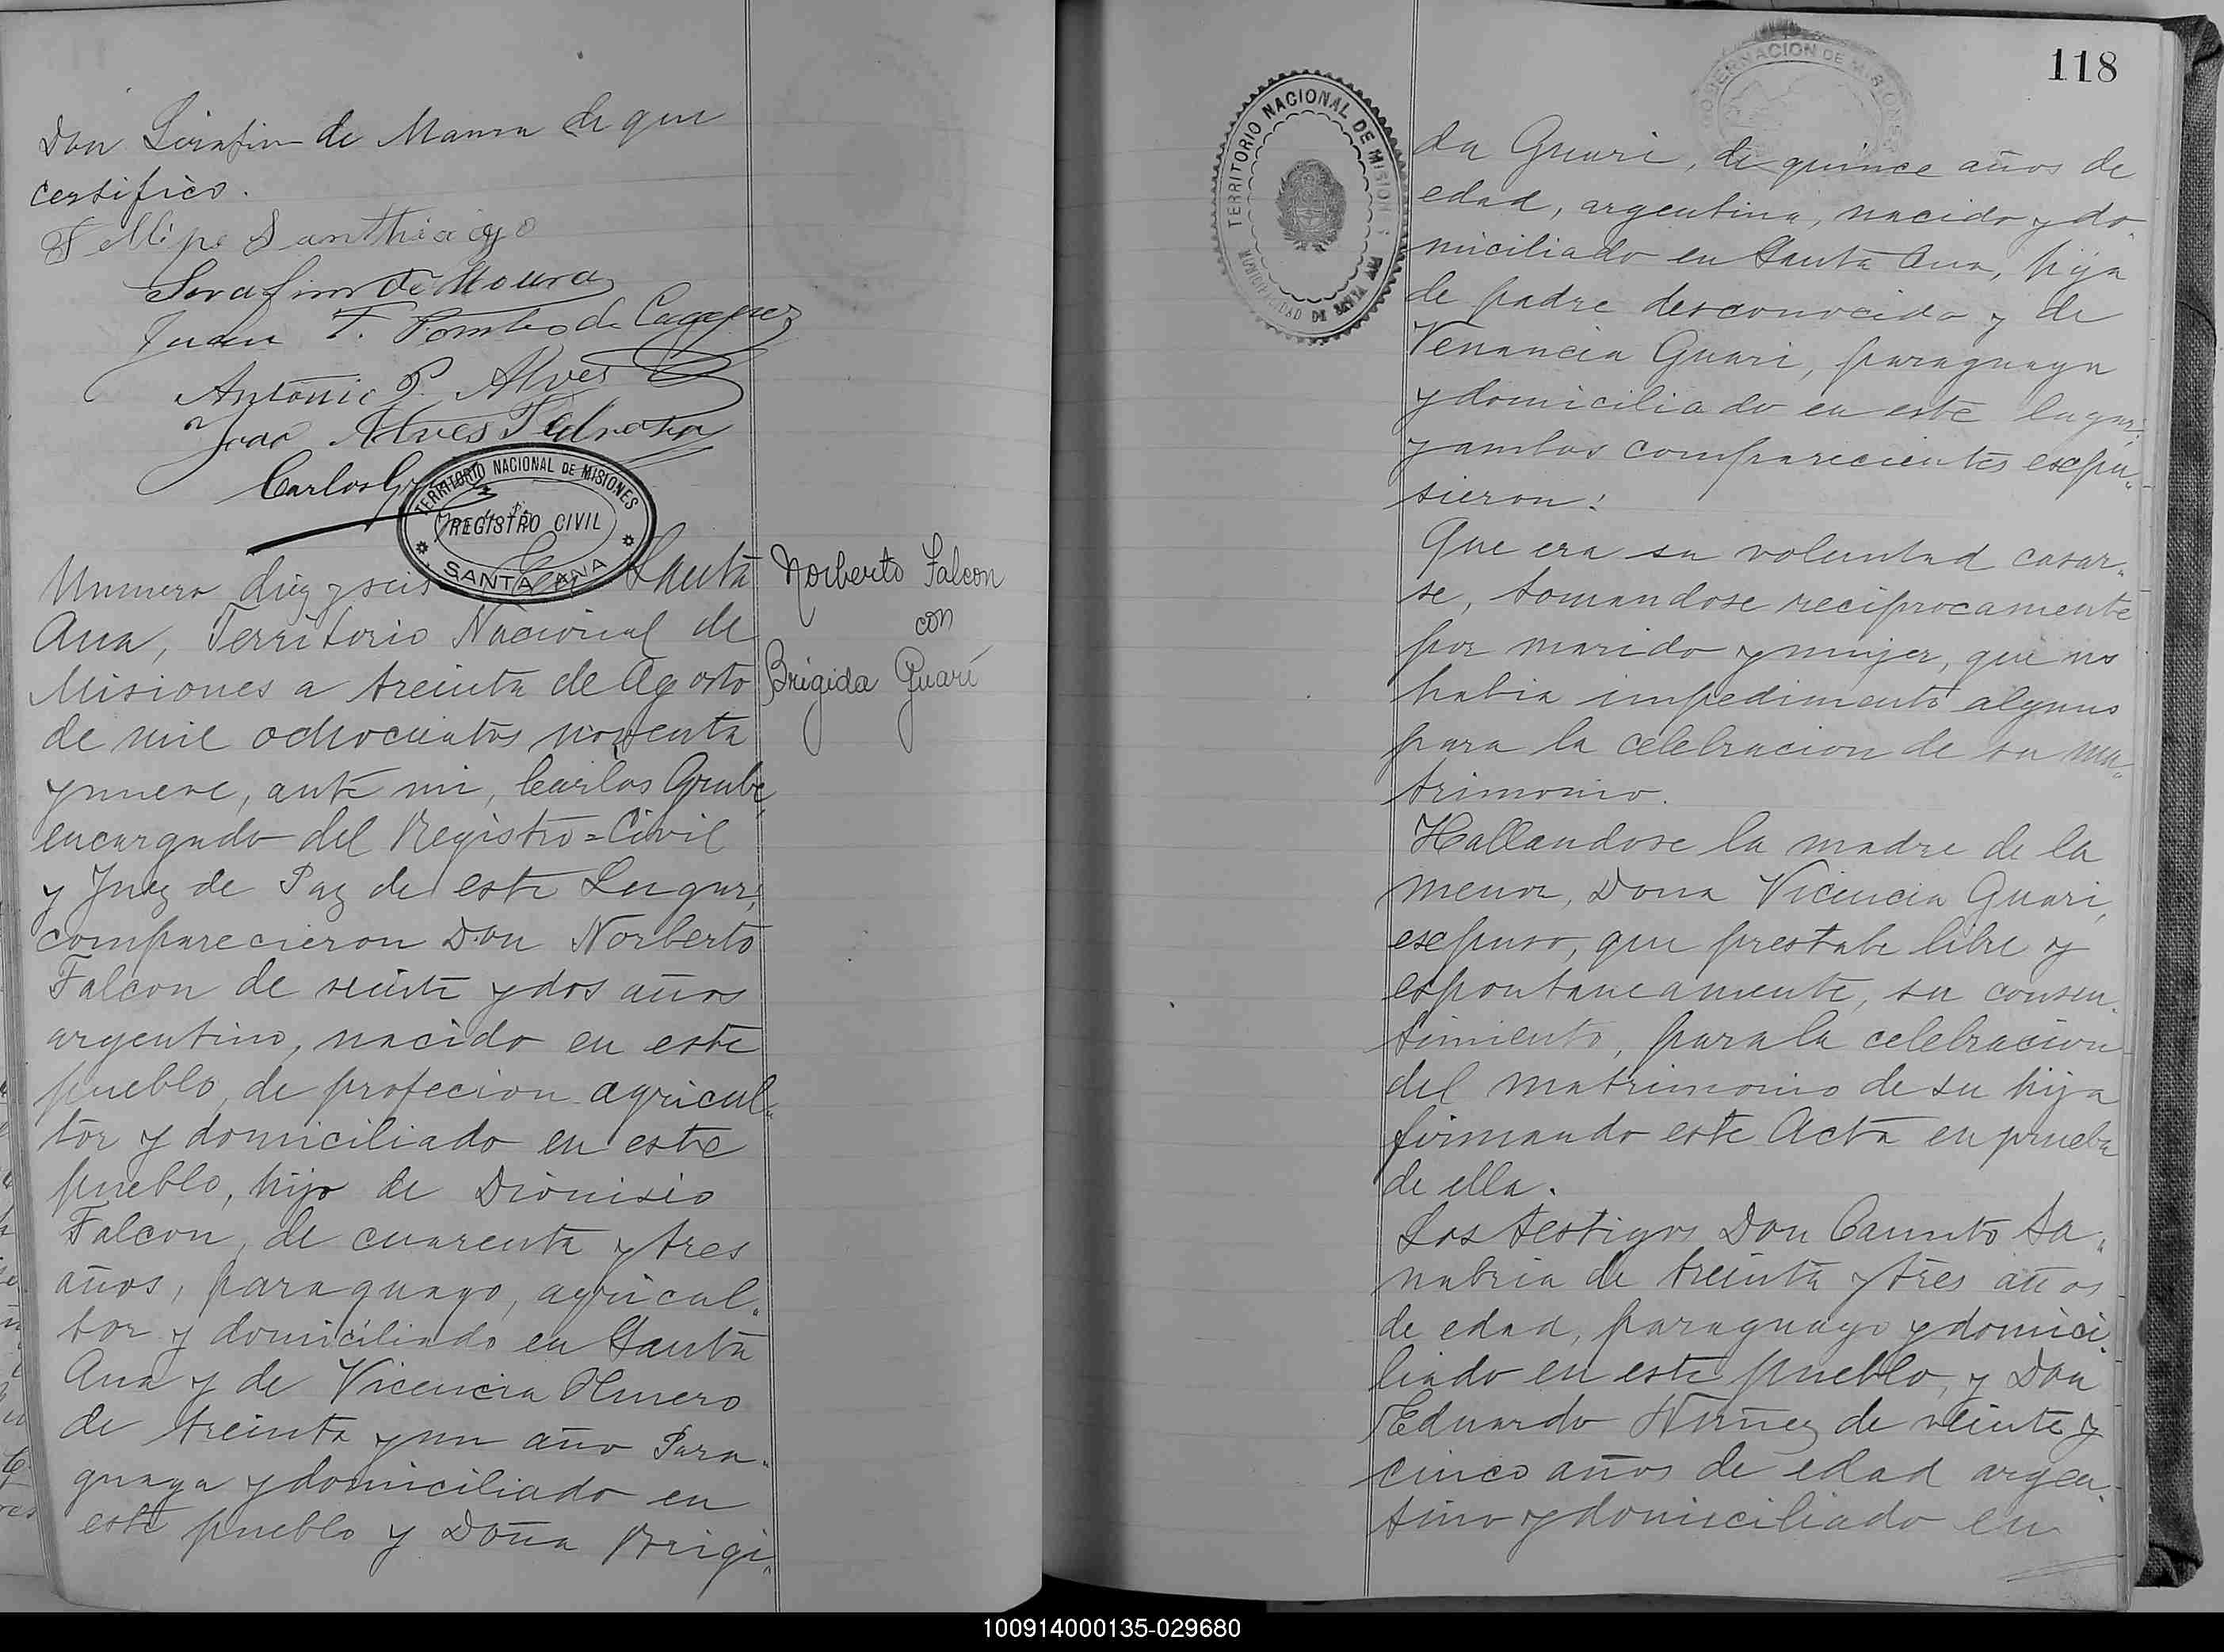 Don Serafin de Maura de que
certifico.
Fellipe Santhiago
Serafim de Moura
Juan F.
Antonio P. Alves
João Alves Pedroso
Carlos
TERRITORIO NACIONAL DE MISIONES
REGISTRO CIVIL
SANTA ANA
Numero diez y seis En Santa
Ana, Territorio Nacional de
Misiones a treinta de Agosto
de mil ochocientos noventa
y nueve, ante mi, Carlos Grube,
encargado del Registro=Civil
y Juez de Paz de este Lugar,
comparecieron Don Norberto
Falcon de veinte y dos años
argentino, nacido en este
pueblo, de profecion agricul-
tor y domiciliado en este
pueblo, hijo de Dionisio
Falcon, de cuarenta y tres
años, paraguayo, agricul-
tor y domiciliado en Santa
Ana y de Vicencia
de treinta y un año Para-
guaya y domiciliado en
este pueblo y Doña Brigi-
Norberto Falcon
con
Brigida Guarí
118
GOBERNACION DE MISIONES
TERRITORIO NACIONAL DE MISIONES
MUNICIPALIDAD DE SANTA ANA
da Guari, de quince años de
edad, argentina, nacido y do-
miciliado en Santa Ana, hija
de padre desconocido y de
Venancia Guari, paraguaya
y domiciliado en este lugar;
y ambos comparecientes escpu-
sieron:
Que era su voluntad casar-
se, tomandose reciprocamente
por marido y mujer, que no
habia impedimento alguno
para la celebracion de su ma-
trimonio.
Hallandose la madre de la
menor, Dona Vicencia Guari,
escpuso, que prestabe libre y
espontaneamente, su consen-
timiento, para la celebracion
del matrimonio de su hija
firmando este Acta en prueba
de ella.
Los testigos Don Canuto Sa-
nabria de treinta y tres años
de edad, paraguayo y domici-
liado en este pueblo, y Don
Eduardo Nuñez de veinte y
cinco años de edad argen-
tino y domiciliado en
100914000135-029680